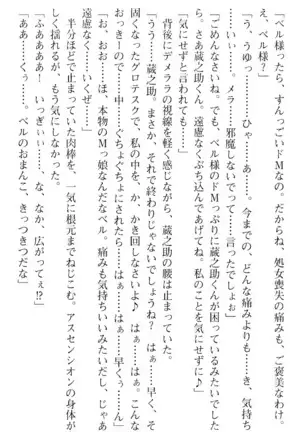 「ベル様はね、すんっごいドMなの。だからね、処女喪失の痛みも、ご褒美なわけ。
ね、ベル様？」
「う、うゆっ……ひゃぁ……。今までの、どんな痛みよりも……き、気持ち
いぃ……。メラ……邪魔しないでって……言ったでしょぉ」
「ごめんなさいね。でも、ベル様のドMっぷりに蔵之助くんが困ってるみたいでした
から。さあ蔵之助くん、遠慮なくぶち込んであげてね。私のことを気にせずに♪」
「気にせずにと言われても……」
背後にデメララの視線を軽く感じながら、蔵之助の腰は止まっていた。
「うう……蔵之助。まさか、それで終わりじゃないでしょうね？　早く、そ
固くなったグロテスクで、私の中を、かき回しなさいよ♪　はぁ……こんな
おっきーので……中……ぐちょぐちょにされたら……はぁ……早くぅ……ん」
「お、おお……ほ、本物のMっ娘なんだなベル。痛みも気持ちいいみたいだし、じゃあ
遠慮なく、いくぜ……」
半分ほどで止まっていた肉棒を、一気に根元までねじこむ。アスセンシオンの身体が
しく揺れるが、もう気にしなかった。
「ふああああ！　いっぎぃぃ……、な、なか、広がってぇ!?」
「ああ……くぅ……。ベルのおまんこ、きつつきつだな」